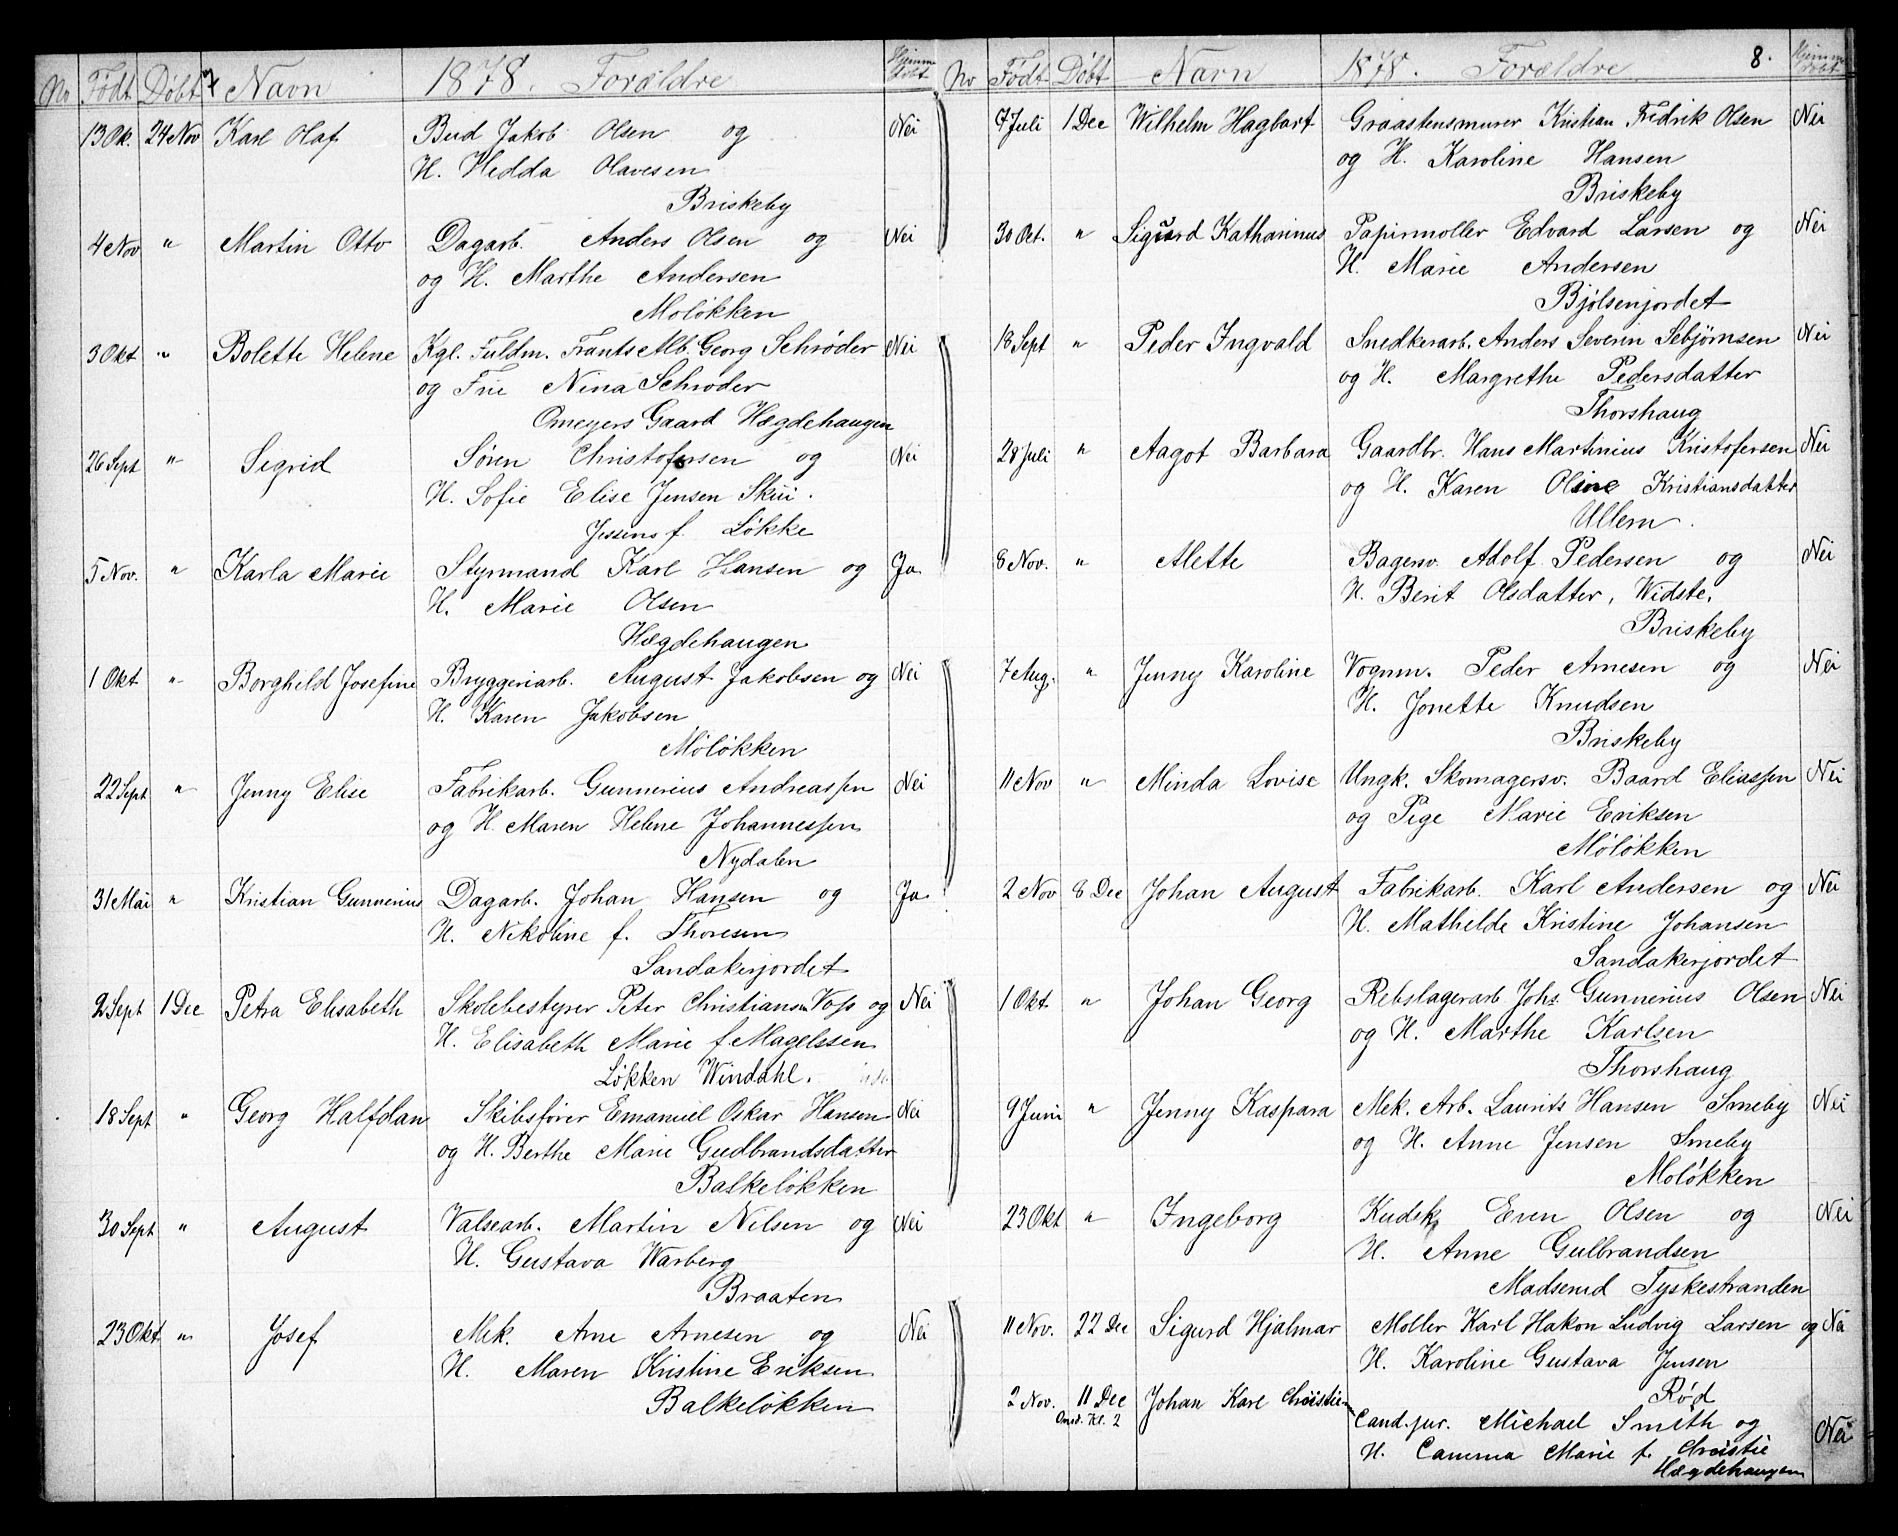 No Født Døbt 7 Navn 1878. Forældre Hjemmedøbt
13 Ok. 24 Nov Karl Olaf Bud Jakob Olsen og Nei
H. Hedda Olavesen
Briskeby
4 Nov " Martin Otto Dagarb. Anders Olsen og Nei
og H. Marthe Andersen
Moløkken
3 Okt " Bolette Helene Kgl. Fuldm. Frants Alb. Georg Schrøder Nei
og Frue Nina Schrøder
Omeyers Gaard Hægdehaugen
26 Sept " Sigrid Søren Christofersen og Nei
H. Sofie Elise Jensen Skui.
Løkke
5 Nov. " Karla Marie Styrmand Karl Hansen og Ja
H. Marie Olsen
Hægdehaugen
1 Okt " Borghild Josefine Bryggeriarb. August Jakobsen og Nei
H. Karen Jakobsen
Møløkken
22 Sept " Jenny Elise Fabrikarb. Gunnerius Andreassen Nei
og H. Maren Helene Johannessen
Nydalen
31 Mai " Kristian Gunnerius Dagarb. Johan Hansen og Ja
H. Nikoline f. Thoresen
Sandakerjordet
2 Sept 1 Dec Petra Elisabeth Skolebestyrer Peter Christiansn Voss og Nei
H. Elisabeth Marie f. Magelssen
Løkken Windahl.
18 Sept " Georg Halfdan Skibsfører Emanuel Oskar Hansen Nei
og H. Berthe Marie Gudbrandsdatter
Balkeløkken
30 Sept " August Valsearb. Martin Nilsen og Nei
H. Gustava Warberg
Braaten
23 Okt " Josef Mek. Arne Arnesen og Nei
H. Maren Kristine Eriksen
Balkeløkken
No Født Døbt Navn 1878. Forældre 8. Hjemmedøbt
7 Juli 1 Dec Wilhelm Hagbart Graastensmurer Kristian Fredrik Olsen Nei
og H. Karoline Hansen
Briskeby
30 Oct. " Sigurd Katharinus Papirmøller Edvard Larsen og Nei
H. Marie Andersen
Bjølsenjordet
18 Sept " Peder Ingvald Snedkerarb. Anders Severin Sebjørnsen Nei
og H. Margrethe Pedersdatter
Thorshaug
28 Juli " Aagot Barbara Gaardbr. Hans Martinius Kristofersen Nei
og H. Karen Oline Kristiansdatter
Ullern.
8 Nov. " Alette Bagersv. Adolf Pedersen og Nei
H. Berit Olsdatter, Widste.
Briskeby
7 Aug. " Jenny Karoline Vognm. Peder Arnesen og Nei
H. Jonette Knudsen
Briskeby
11 Nov " Minda Lovise Ungk. Skomagersv. Baard Eliassen Nei
og Pige Marie Eriksen
Møløkken
2 Nov 8 Dec Johan August Fabrikarb. Karl Andersen og Nei
H. Mathelde Kristine Johansen
Sandakerjordet
1 Okt " Johan Georg Rebslagerarb Johs. Gunnerius Olsen Nei
og H. Marthe Karlsen
Thorshaug
9 Juni " Jenny Kaspara Mek. Arb. Laurits Hansen Smeby Nei
og H. Anne Jensen Smeby
Moløkken
23 Okt " Ingeborg Kudsk Even Olsen og Nei
H. Anne Gulbrandsen
Madserud Tyskestranden
11 Nov. 22 Dec Sigurd Hjalmar Møller Karl Hakon Ludvig Larsen og Nei
H. Karoline Gustava Jensen
Rød
2 Nov. 11 Dec Johan Karl Christie
Onsd. Kl. 2
Cand. jur. Michael Smith og Nei
H. Camma Marie f. Christie
Hægdehaugen